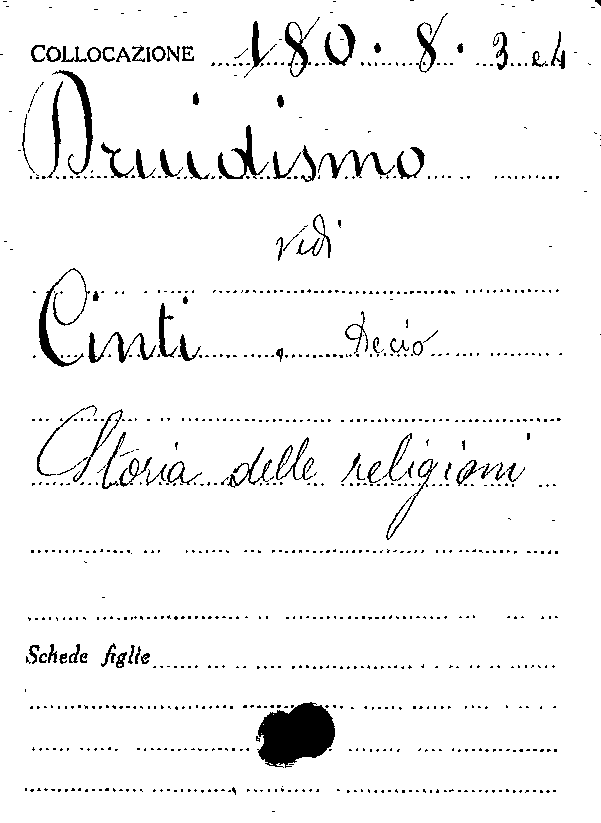 COLLOCAZIONE 180. 8. 3 e 4
Druidismo
vedi
Cinti, Decio
Storia delle religioni
Schede figlie